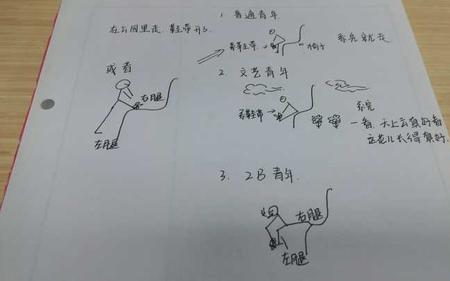 1. 普通青年
在公园里走，鞋带开了.
系鞋带. 椅子 系完就走
或者
右腿
左腿
2. 文艺青年
系鞋带 系完
一看，天上云真好看
这花儿长得真好.
3. 2B青年.
右腿
左腿